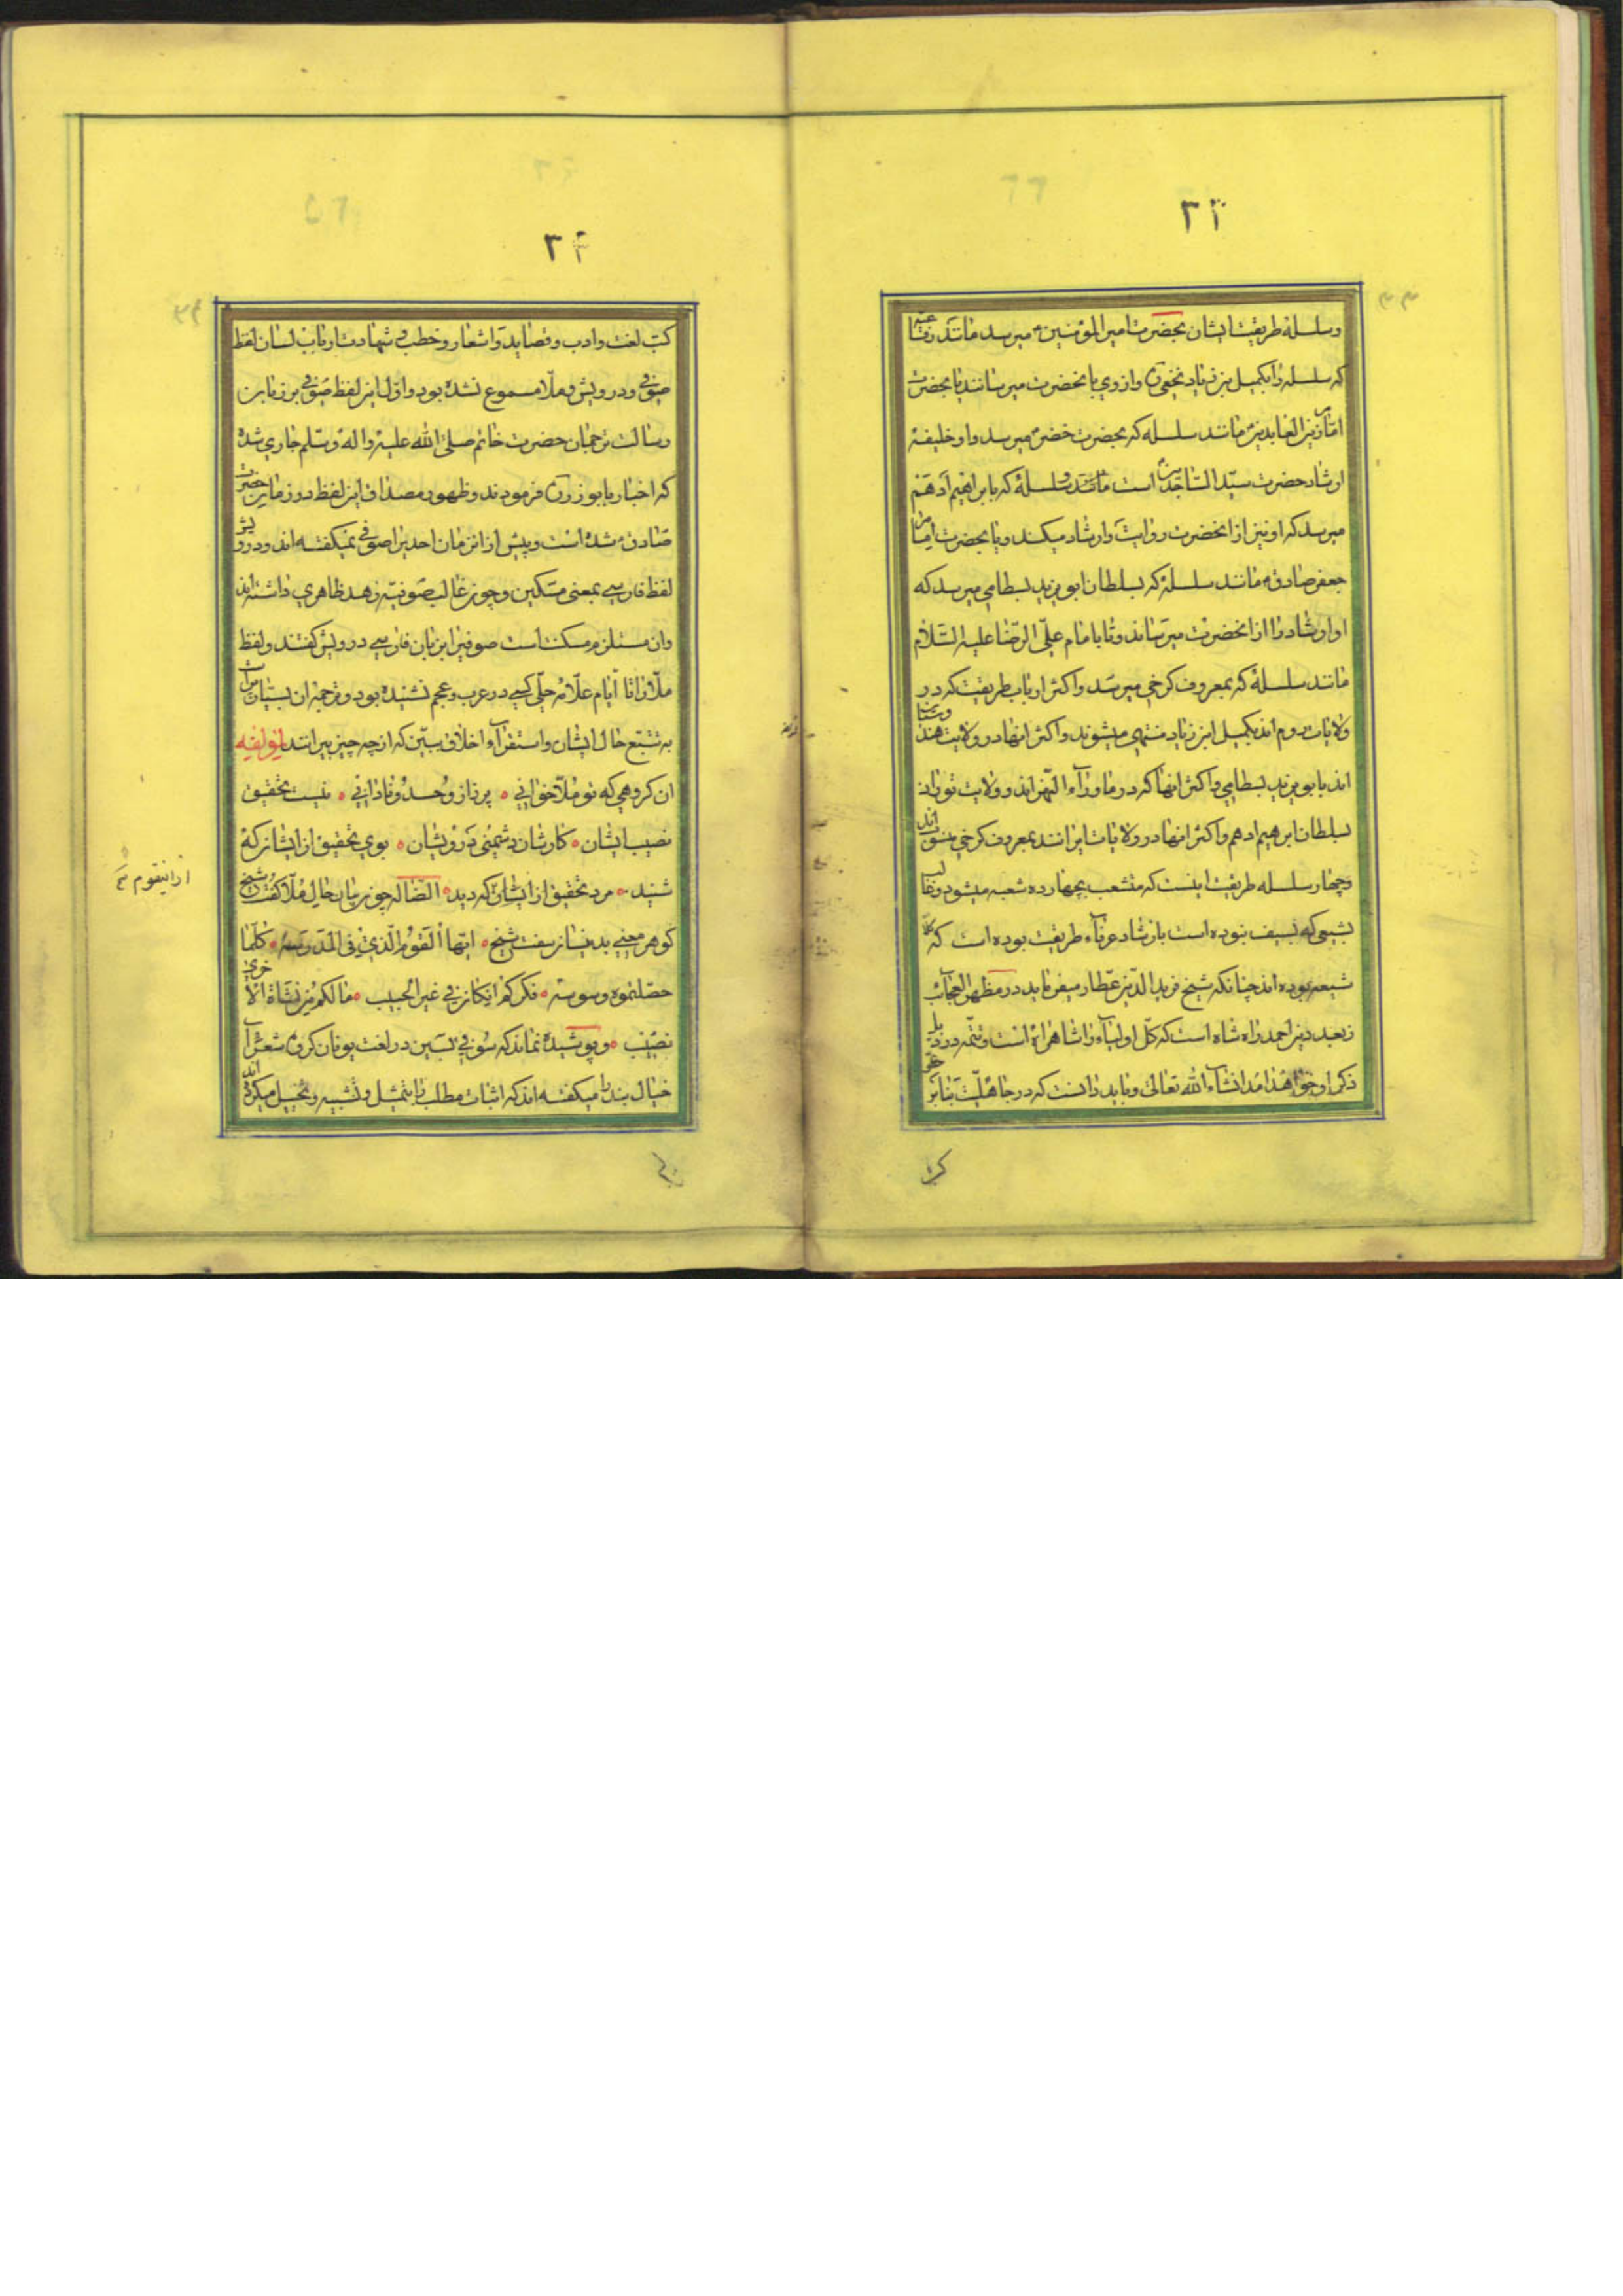 ۳۳
وسلسلهٔ طریقت ایشان بحضرت امیر المؤمنین ع میرسد مانند رفاعیه
که سلسله را بکمیل بن زیاد نخعی و از وی بانحضرت میرسانند یا بحضرت
امام زین العابدین مانند سلسله که بحضرت خضر میرسد و او خلیفهٔ
ارشاد حضرت سید الساجدین است مانند سلسلهٔ که بابراهیم ادهم
میرسد که او نیز از انحضرت روایت و ارشاد میکند و یا بحضرت امام
جعفر صادق ع مانند سلسلهٔ که بسلطان ابو یزید بسطامی میرسد که
او ارشاد را از انحضرت میرساند و تا بامام علی الرضا علیه السلام
مانند سلسلهٔ که بمعروف کرخی میرسد و اکثر ارباب طریقت که در
ولایات روم اند بکمیل ابن زیاد منتهی میشوند و اکثر انها در ولایت هندوستان
اند بابو یزید بسطامی و اکثر انها که در ماوراء النهر اند و ولایت توران
بسلطان ابرهیم ادهم و اکثر انها در ولایات ایرانند بمعروف کرخی اند
و چهار سلسله طریقت اینست که منشعب بچهارده شعبه میشود و غالب
بشیعی که بسیف نبوده است بارشاد عرفاء طریقت بوده است که
شیعه بوده اند چنانکه شیخ فرید الدین عطار میفرماید در مظهر العجائب
ز بعد دین احمد راه شاه است که کل اولیاء را شاهراه است و تتمه در ذیل
ذکر او خواهد امد انشاء الله تعالی و باید دانست که در جاهلیت بنابر
کتب
۳۴
کتب لغت و ادب و قصاید و اشعار و خطب و شهادت ارباب لسان لفظ
صوفی و درویش و ملا مسموع نشده بود و اول این لفظ صوفی بر زبان
رسالت ترجمان حضرت خاتم صلی الله علیه واله وسلم جاری شده
که اخبار بابو ذر فرمودند و ظهور مصداق این لفظ در زمان حضرت
صادق ع شده است و پیش از انزمان احدیرا صوفی نمیکفته اند و درویش
لفظ فارسی بمعنی مسکین و چون غالب صوفیه زهد ظاهری داشته اند
وان مستلزم مسکنت است صوفیرا بزبان فارسی درویش کفتند و لفظ
ملا را تا ایام علامه حلی کسی در عرب و عجم نشنیده بود و ترجمهٔ ان
به تتبع حال ایشان و استقراء اخلاق ببین که از چه چیز بیرانند لمؤلفه
ان کروهی که تو ملا خوانی پر ز از و حسد و نادانی نیست تحقیق
نصیب ایشان کارشان دشمنی درویشان بوی تحقیق از ایشان که
شنید مرد تحقیق از ایشان که دید الضاله چون زبان حال ملا کفت شیخ
کوهر معنی بدینسان سفت شیخ ایها القوم الذی فی المدرسه کلما
حصلتموه وسوسه فکرکم ان کان فی غیر الحبیب مالکم من نشأة الاخری
نصیب و پوشیده نماند که سوفی بسین در لغت یونان کروه شعراء
خیال بند را میکفته اند که اثبات مطلب را بتمثیل و تشبیه و تخییل میکرده اند
ازاینقوم